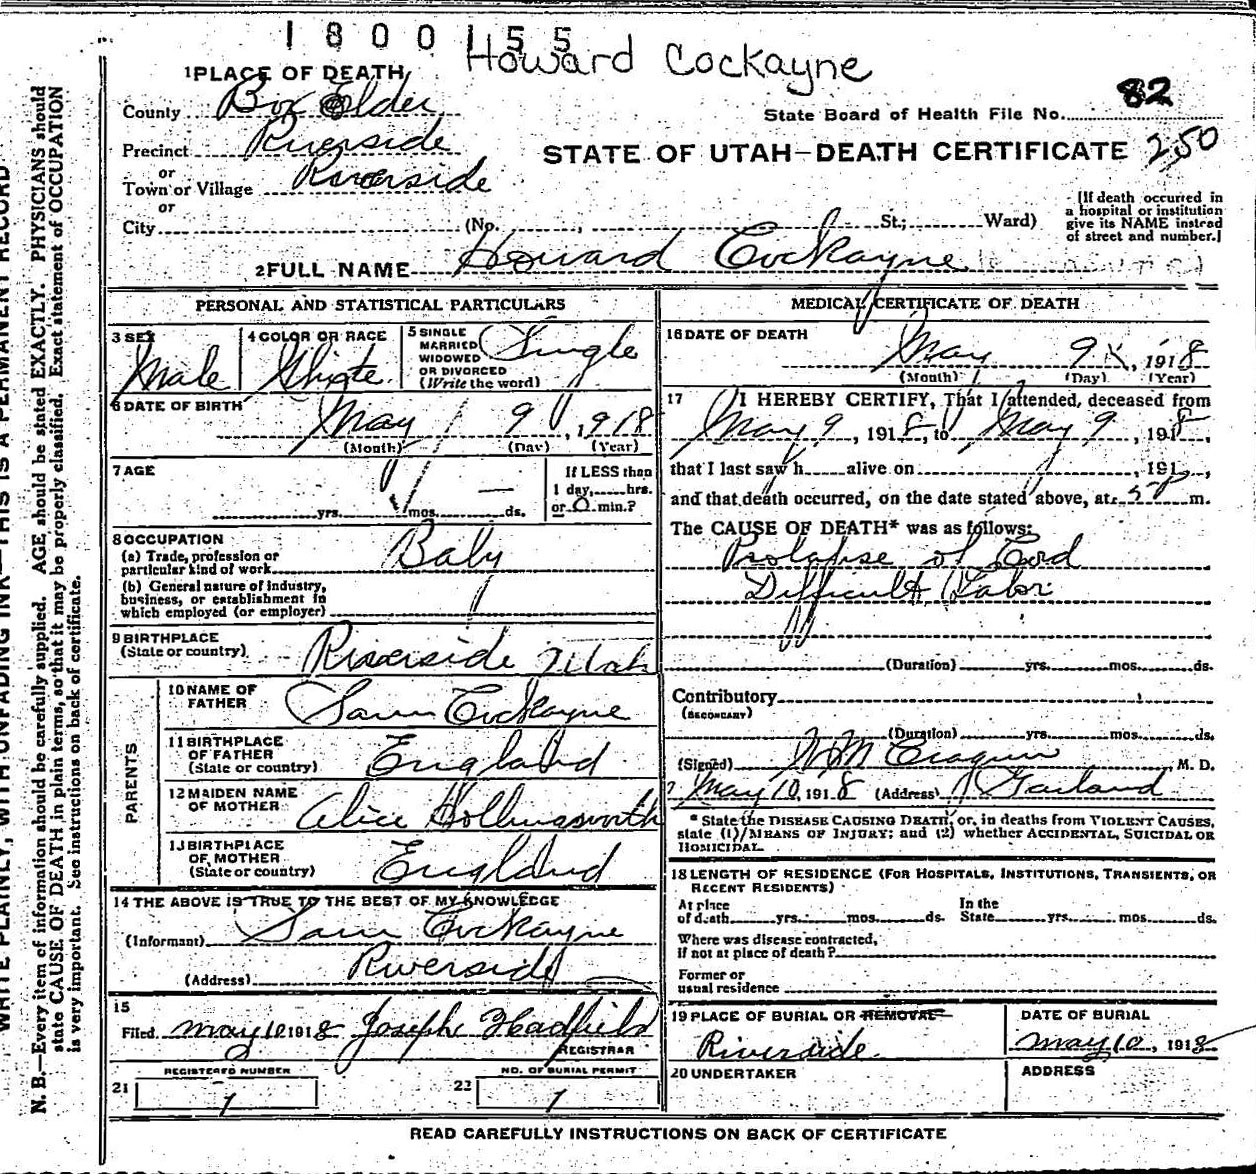 1800155
Howard Cockayne
1 PLACE OF DEATH
County Box Elder
State Board of Health File No. 82
Precinct Riverside
STATE OF UTAH—DEATH CERTIFICATE 250
or
Town or Village Riverside
or
City (No. , St; Ward)
[If death occurred in
a hospital or institution
give its NAME instead
of street and number.]
2 FULL NAME Howard Cockayne
PERSONAL AND STATISTICAL PARTICULARS
3 SEX
Male
4 COLOR OR RACE
White
5 SINGLE
MARRIED
WIDOWED
OR DIVORCED
(Write the word)
Single
6 DATE OF BIRTH
May 9, 1918
(Month) (Day) (Year)
7 AGE
yrs. mos. — ds.
If LESS than
1 day, hrs.
or 0 min.?
8 OCCUPATION
(a) Trade, profession or
particular kind of work Baby
(b) General nature of industry,
business, or establishment in
which employed (or employer)
9 BIRTHPLACE
(State or country) Riverside Utah
PARENTS
10 NAME OF
FATHER Sam Cockayne
11 BIRTHPLACE
OF FATHER
(State or country) England
12 MAIDEN NAME
OF MOTHER Alice Hollinsworth
13 BIRTHPLACE
OF MOTHER
(State or country) England
14 THE ABOVE IS TRUE TO THE BEST OF MY KNOWLEDGE
(Informant) Sam Cockayne
(Address) Riverside
15
Filed May 10 1918 Joseph Hadfield
REGISTRAR
REGISTERED NUMBER
21 1
NO. OF BURIAL PERMIT
22 1
MEDICAL CERTIFICATE OF DEATH
16 DATE OF DEATH
May 9, 1918
(Month) (Day) (Year)
17 I HEREBY CERTIFY, That I attended, deceased from
May 9, 1918, to May 9, 1918,
that I last saw h alive on , 191 ,
and that death occurred, on the date stated above, at 5 P m.
The CAUSE OF DEATH* was as follows:
Prolapse of Cord
Difficult Labor
(Duration) yrs. mos. ds.
Contributory
(SECONDARY)
(Duration) yrs. mos. ds.
(Signed) , M. D.
May 10, 1918 (Address) Garland
* State the DISEASE CAUSING DEATH, or, in deaths from VIOLENT CAUSES,
state (1) MEANS OF INJURY; and (2) whether ACCIDENTAL, SUICIDAL OR
HOMICIDAL.
18 LENGTH OF RESIDENCE (FOR HOSPITALS, INSTITUTIONS, TRANSIENTS, OR
RECENT RESIDENTS)
At place
of death yrs. mos. ds.
In the
State yrs. mos. ds.
Where was disease contracted,
if not at place of death?
Former or
usual residence
19 PLACE OF BURIAL OR REMOVAL
Riverside
DATE OF BURIAL
May 10, 1918
20 UNDERTAKER
ADDRESS
READ CAREFULLY INSTRUCTIONS ON BACK OF CERTIFICATE
WRITE PLAINLY, WITH UNFADING INK—THIS IS A PERMANENT RECORD
N. B.—Every item of information should be carefully supplied. AGE should be stated EXACTLY. PHYSICIANS should
state CAUSE OF DEATH in plain terms, so that it may be properly classified. Exact statement of OCCUPATION
is very important. See instructions on back of certificate.